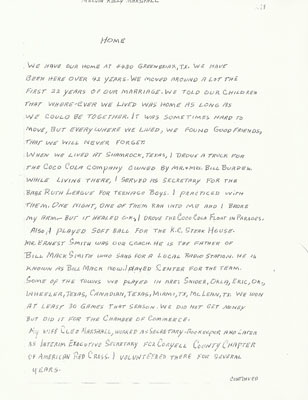 MARION KELLY MARSHALL
HOME
WE HAVE OUR HOME AT 6430 GREENBRIAR, TX. WE HAVE
BEEN HERE OVER 42 YEARS. WE MOVED AROUND A LOT THE
FIRST 22 YEARS OF OUR MARRIAGE. WE TOLD OUR CHILDREN
THAT WHERE-EVER WE LIVED WAS HOME AS LONG AS
WE COULD BE TOGETHER. IT WAS SOMETIMES HARD TO
MOVE, BUT EVERYWHERE WE LIVED, WE FOUND GOOD FRIENDS,
THAT WE WILL NEVER FORGET.
WHEN WE LIVED AT SHAMROCK, TEXAS, I DROVE A TRUCK FOR
THE COCO COLA COMPANY OWNED BY MR. & MRS. BILL
WHILE LIVING THERE, I SERVED AS SECRETARY FOR THE
BABE RUTH LEAGUE FOR TEENAGE BOYS. I PRACTICED WITH
THEM. ONE NIGHT, ONE OF THEM RAN INTO ME AND I BROKE
MY ARM. BUT IT HEALED O.K.; I DROVE THE COCO COLA FLOAT IN PARADES.
ALSO, I PLAYED SOFT BALL FOR THE K.C. STEAK HOUSE.
MR. ERNEST SMITH WAS OUR COACH. HE IS THE FATHER OF
BILL MACK SMITH WHO SANG FOR A LOCAL RADIO STATION. HE IS
KNOWN AS BILL MACK NOW. I PLAYED CENTER FOR THE TEAM.
SOME OF THE TOWNS WE PLAYED IN ARE: SNIDER, OKLA, ERIC, OK,
WHEELER, TEXAS, CANADIAN, TEXAS, MIAMI, TX, MCLEAN, TX. WE WON
AT LEAST 30 GAMES THAT SEASON. WE DID NOT GET MONEY
BUT DID IT FOR THE CHAMBER OF COMMERCE.
MY WIFE CLEO MARSHALL, WORKED AS SECRETARY-BOOKKEEPER AND LATER
AS INTERIM EXECUTIVE SECRETARY FOR CORYELL COUNTY CHAPTER
OF AMERICAN RED CROSS. I VOLUNTEERED THERE FOR SEVERAL
YEARS.
CONTINUED